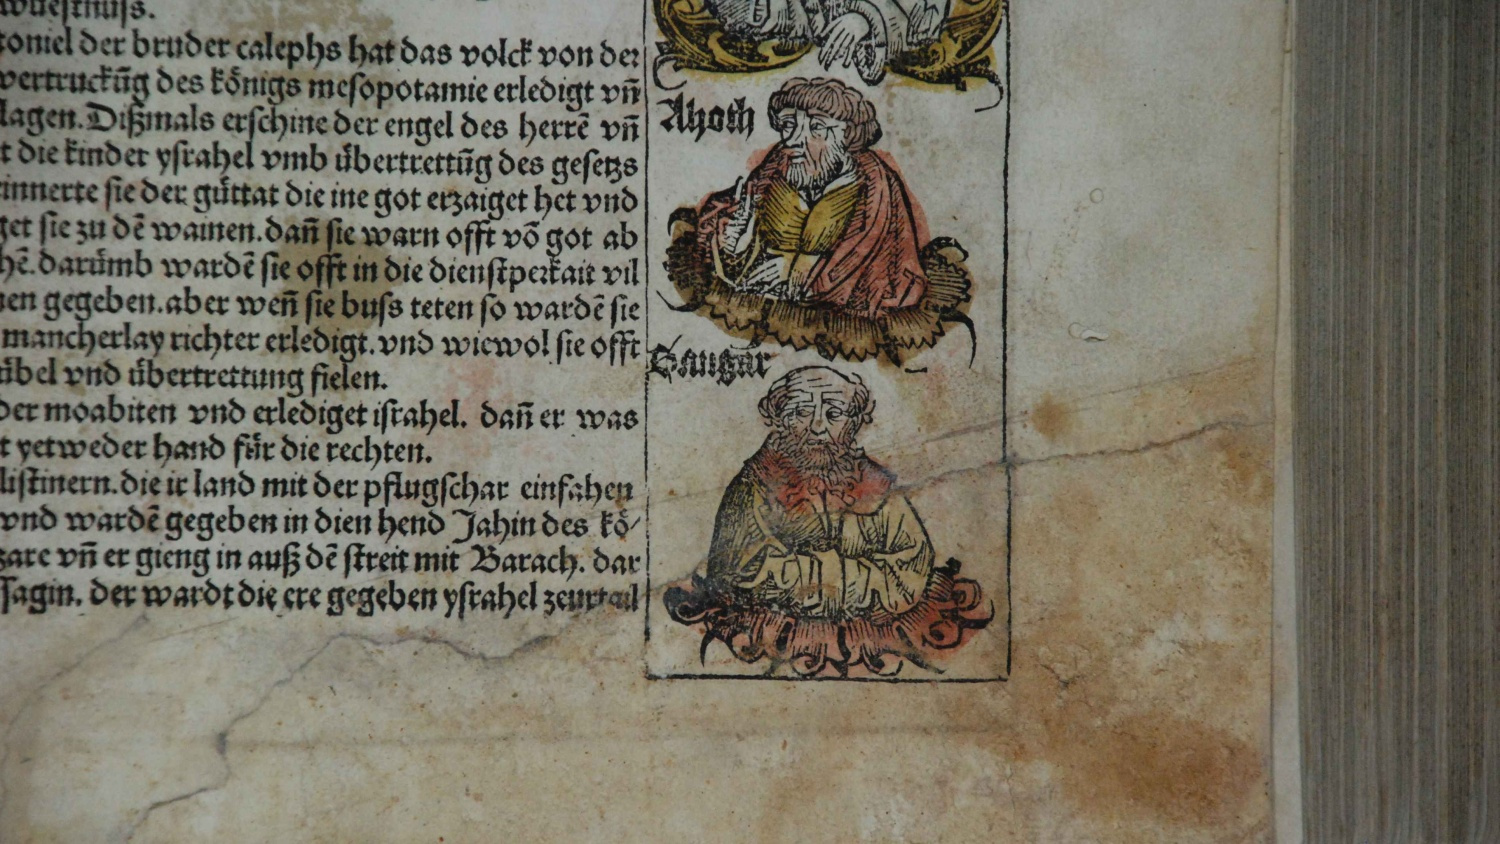 wüestnuss.
toniel der bruder calephs hat das volck von der
vertruckūg des königs mesopotamie erledigt vñ
lagen. Dißmals erschine der engel des herrē vñ
t die kinder ysrahel vmb übertrettūg des gesetzs
innerte sie der güttat die ine got erzaiget het vnd
get sie zu dē wainen. dañ sie warn offt vō got ab
hē. darümb wardē sie offt in die dienstperkait vil
nen gegeben. aber weñ sie buss teten so wardē sie
mancherlay richter erledigt. vnd wiewol sie offt
übel vnd übertrettung fielen.
der moabiten vnd erlediget israhel. dañ er was
t yetweder hand für die rechten.
listinern. die ir land mit der pflugschar einfahen
vnd wardē gegeben in dien hend Jahin des kö/
zare vñ er gieng in auß dē streit mit Barach. dar
Jagin. der wardt die ere gegeben ysrahel zeurtail
Ahoth
Sangar